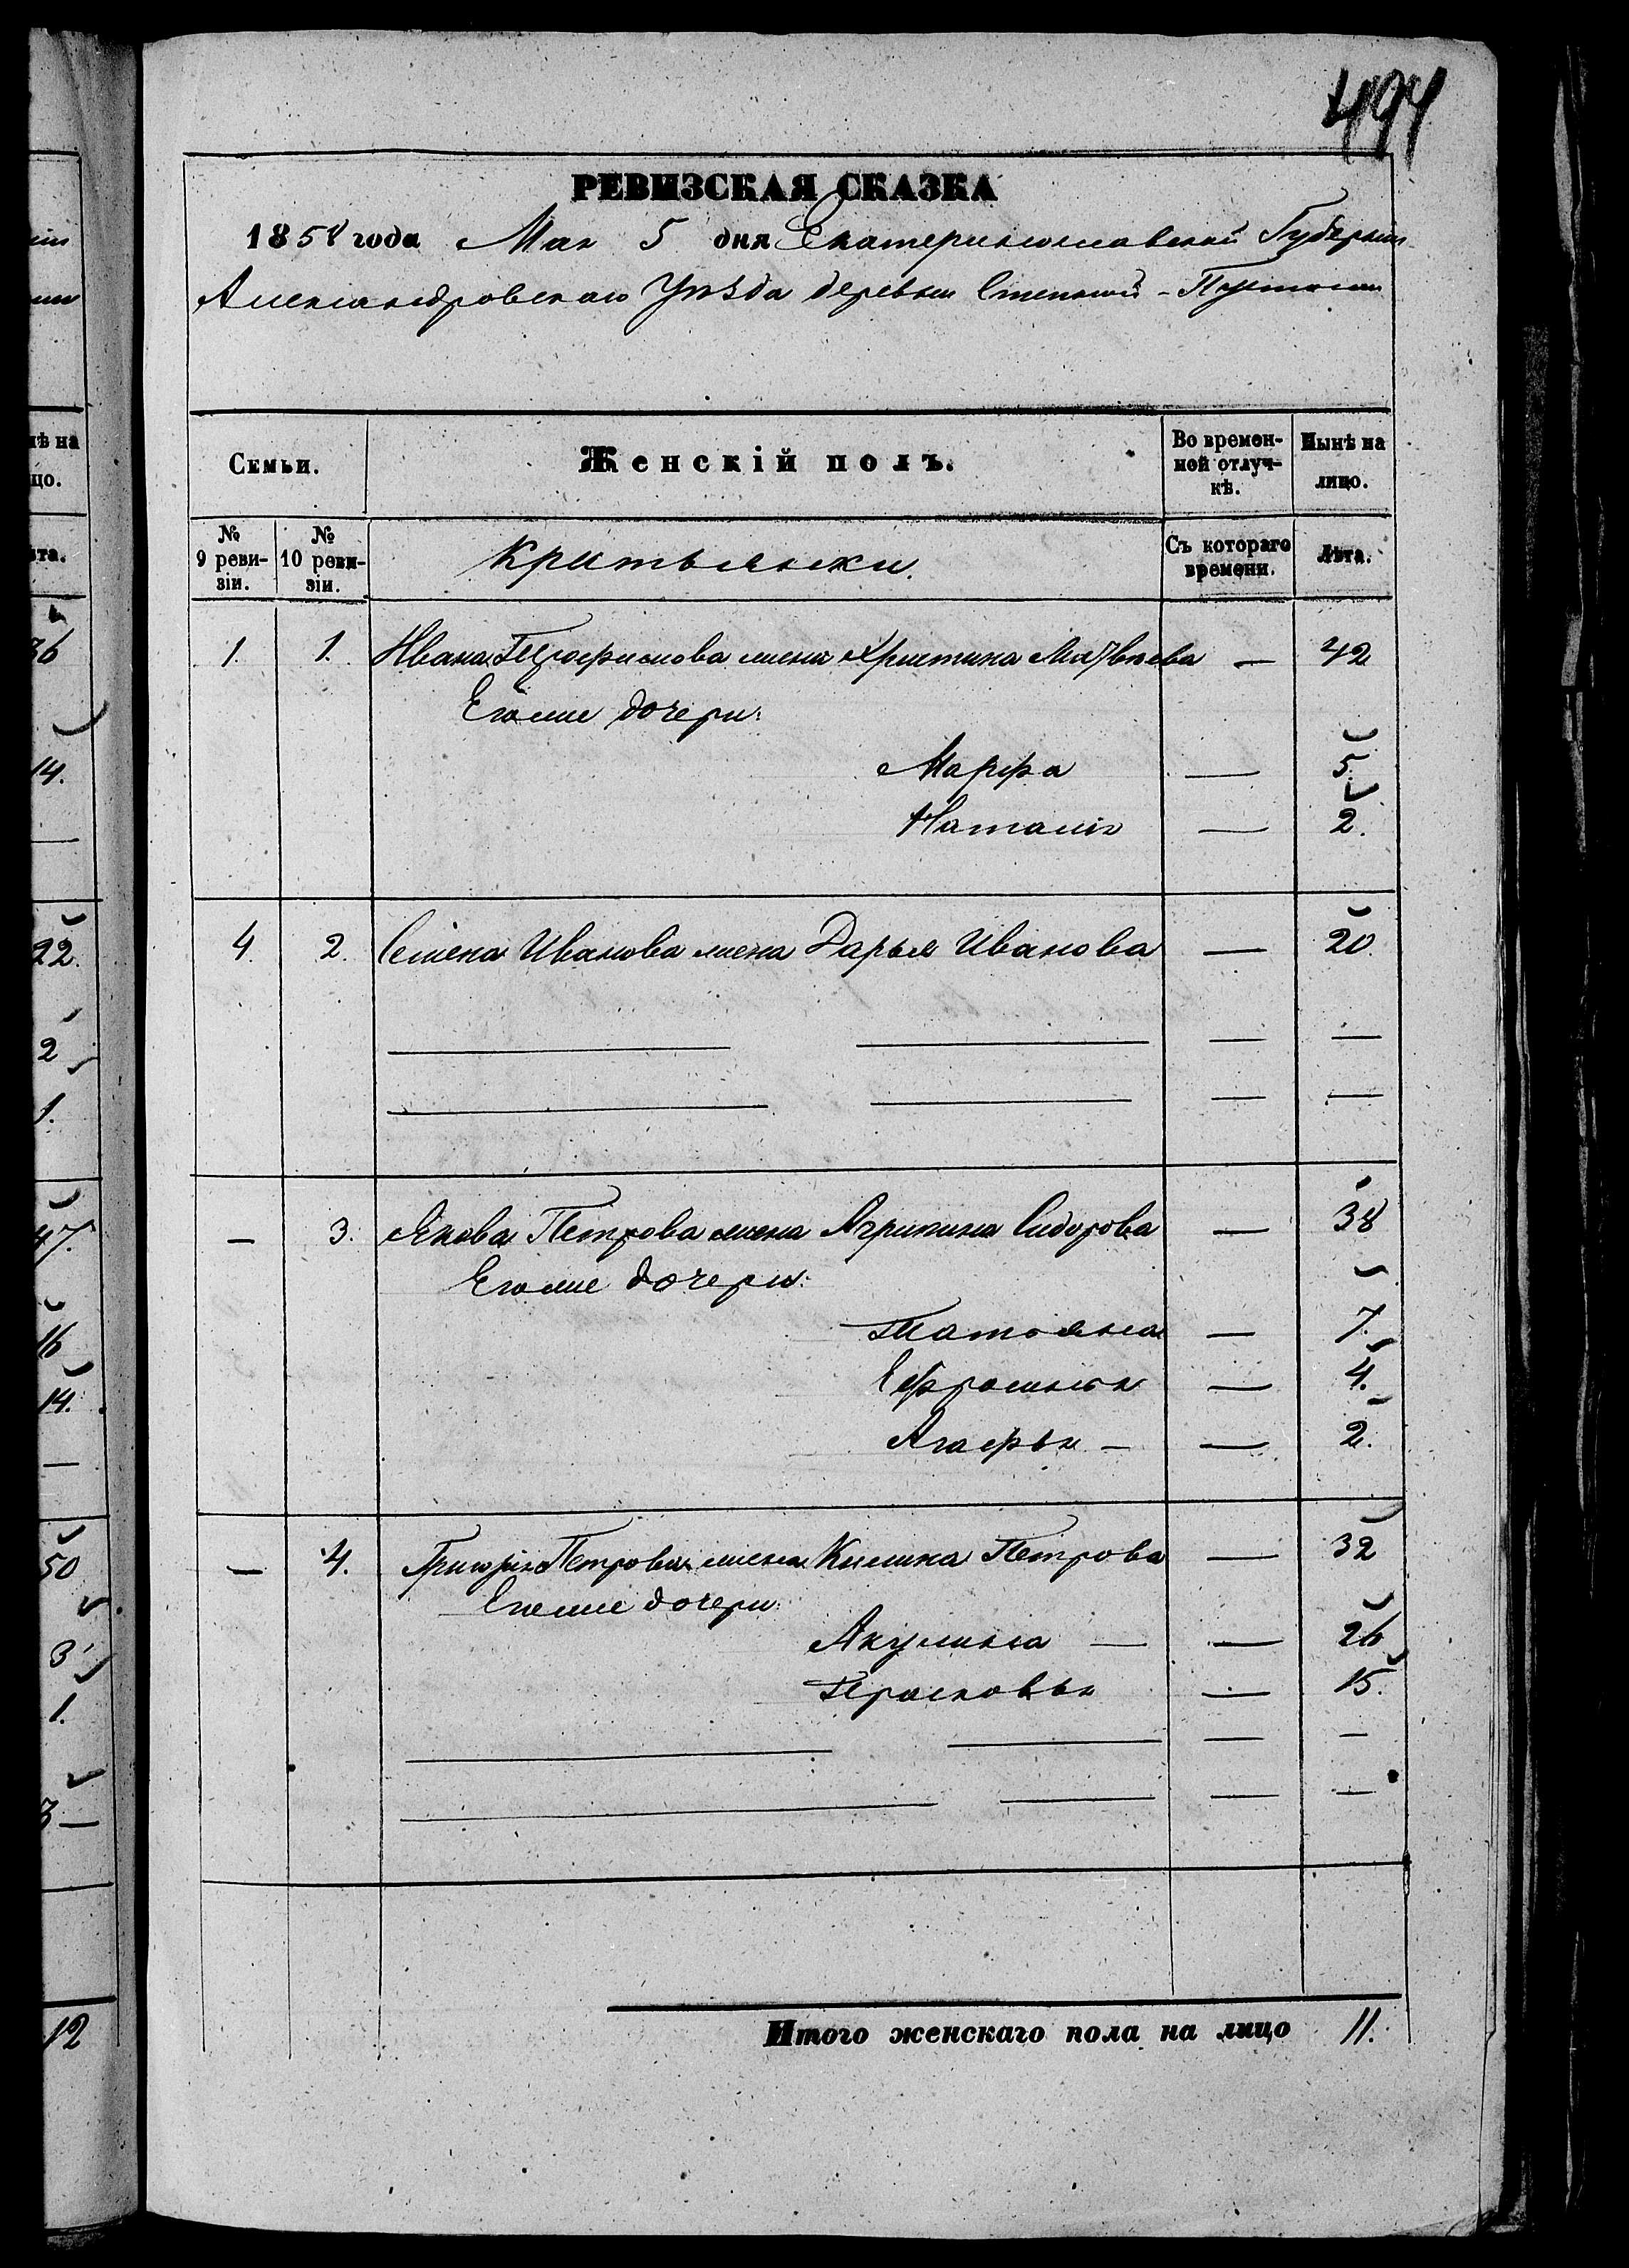 494
РЕВИЗСКАЯ СКАЗКА
1858 года Мая 5 дня Екатеринославской Губерніи
Александровскаго Уѣзда деревни Степной-
нѣ на
Семьи. Женскій полъ. Во времен-ной отлуч-кѣ. Нынѣ на лицо.
цо.
ѣта.
№ 9 реви-зіи. № 10 реви-зіи. Крестьянки. Съ котораго времени. Лѣта.
36
1. 1. Ивана Трофимова жена Христина Матвѣева — 42
Его же дочери:
14. Марфа — 5.
Наталія — 2.
22. 4. 2. Семена Иванова жена Дарья Иванова — 20.
2
1.
47. — 3. Якова Петрова жена Агрипина Сидорова — 38
Его же дочери:
16 Татьяна — 7.
14. Ефросинья — 4.
Агафья — — 2.
50 — 4. Григорія Петрова жена Петрова — 32
Его же дочери:
3 Акулина — — 26
1. Прасковья — 15.
3 —
12 Итого женскаго пола на лицо 11.